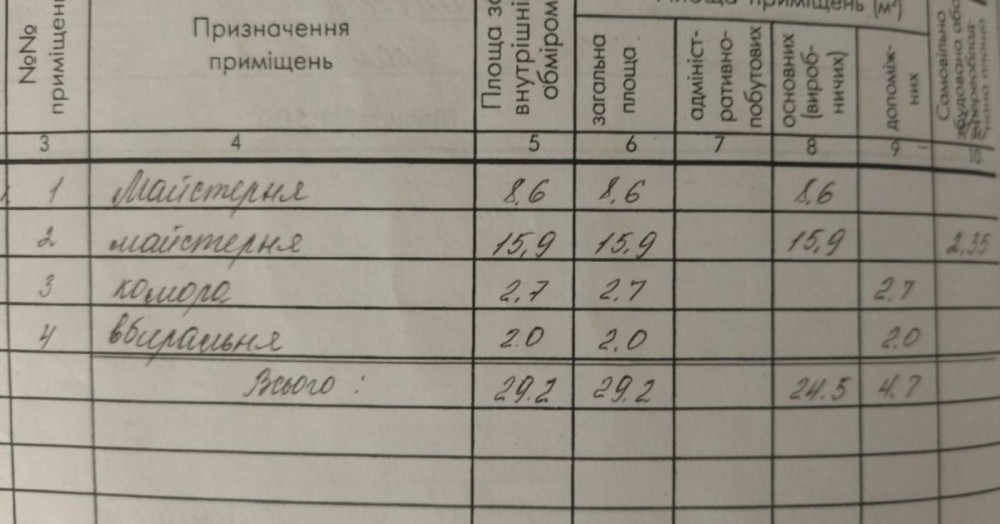 №№ приміщень
Призначення приміщень
Площа за внутрішнім обміром
Площа приміщень (м²)
загальна площа
адмініст-ративно-побутових
основних (вироб-ничих)
допоміж-них
Самовільно збудована або
3 4 5 6 7 8 9 10
1 Майстерня 8,6 8,6 8,6
2 майстерня 15,9 15,9 15,9 2,35
3 комора 2,7 2,7 2.7
4 вбиральня 2.0 2.0 2.0
Всього : 29.2 29.2 24.5 4.7